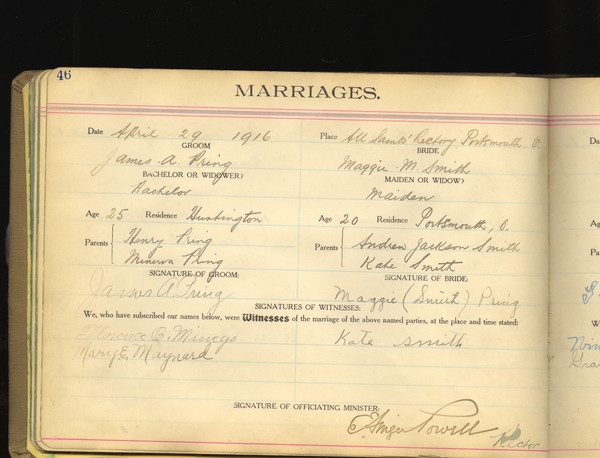 46
MARRIAGES.
Date April 29 1916 Place All Saints' Rectory, Portsmouth, O.
GROOM BRIDE
James A. Pring Maggie M. Smith
BACHELOR OR WIDOWER? MAIDEN OR WIDOW?
Bachelor Maiden
Age 25 Residence Huntington Age 20 Residence Portsmouth, O.
Parents Henry Pring Parents Andrew Jackson Smith
Minerva Pring Kate Smith
SIGNATURE OF GROOM: SIGNATURE OF BRIDE:
James A. Pring Maggie (Smith) Pring
SIGNATURES OF WITNESSES:
We, who have subscribed our names below, were Witnesses of the marriage of the above named parties, at the place and time stated:
Florence G. Kate Smith
Mary E. Maynard
SIGNATURE OF OFFICIATING MINISTER:
Powell
Rector